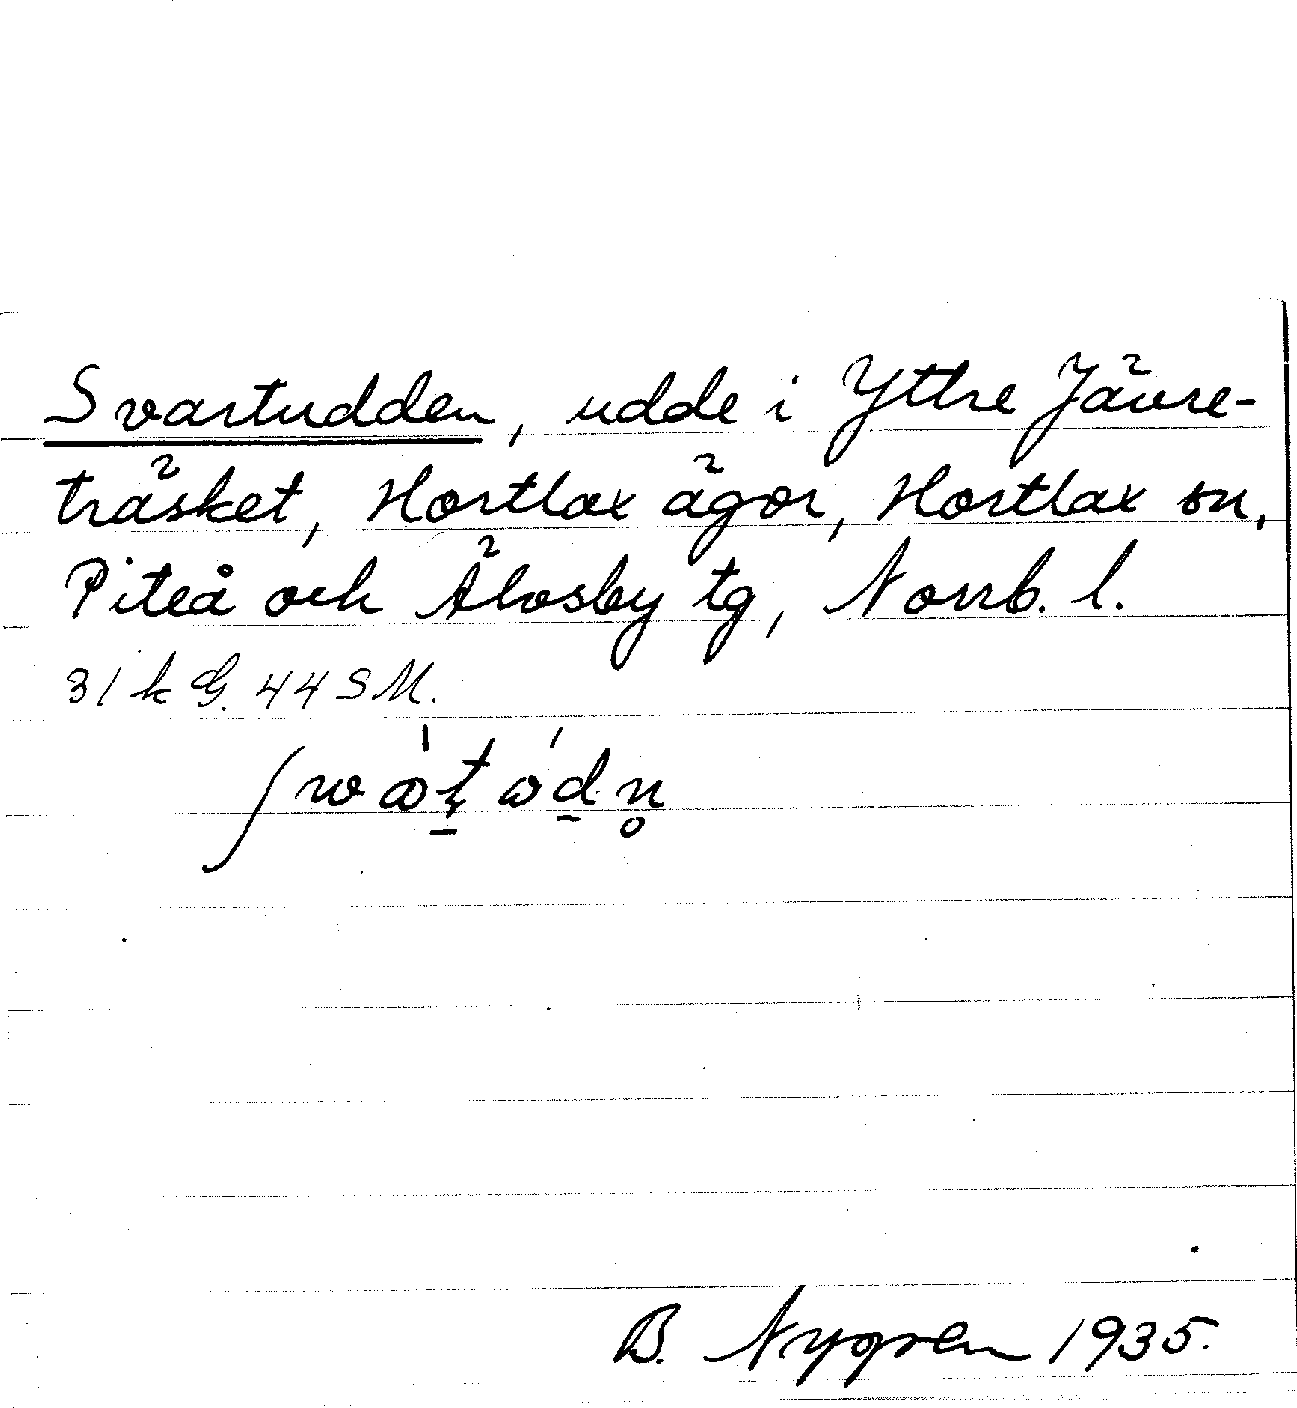 Svartudden, udde i Yttre Jävre-
träsket, Hortlax ägor, Hortlax sn,
Piteå och Älvsby tg, Norrb. l.
31 k G. 44 S M.
B. Nygren 1935.